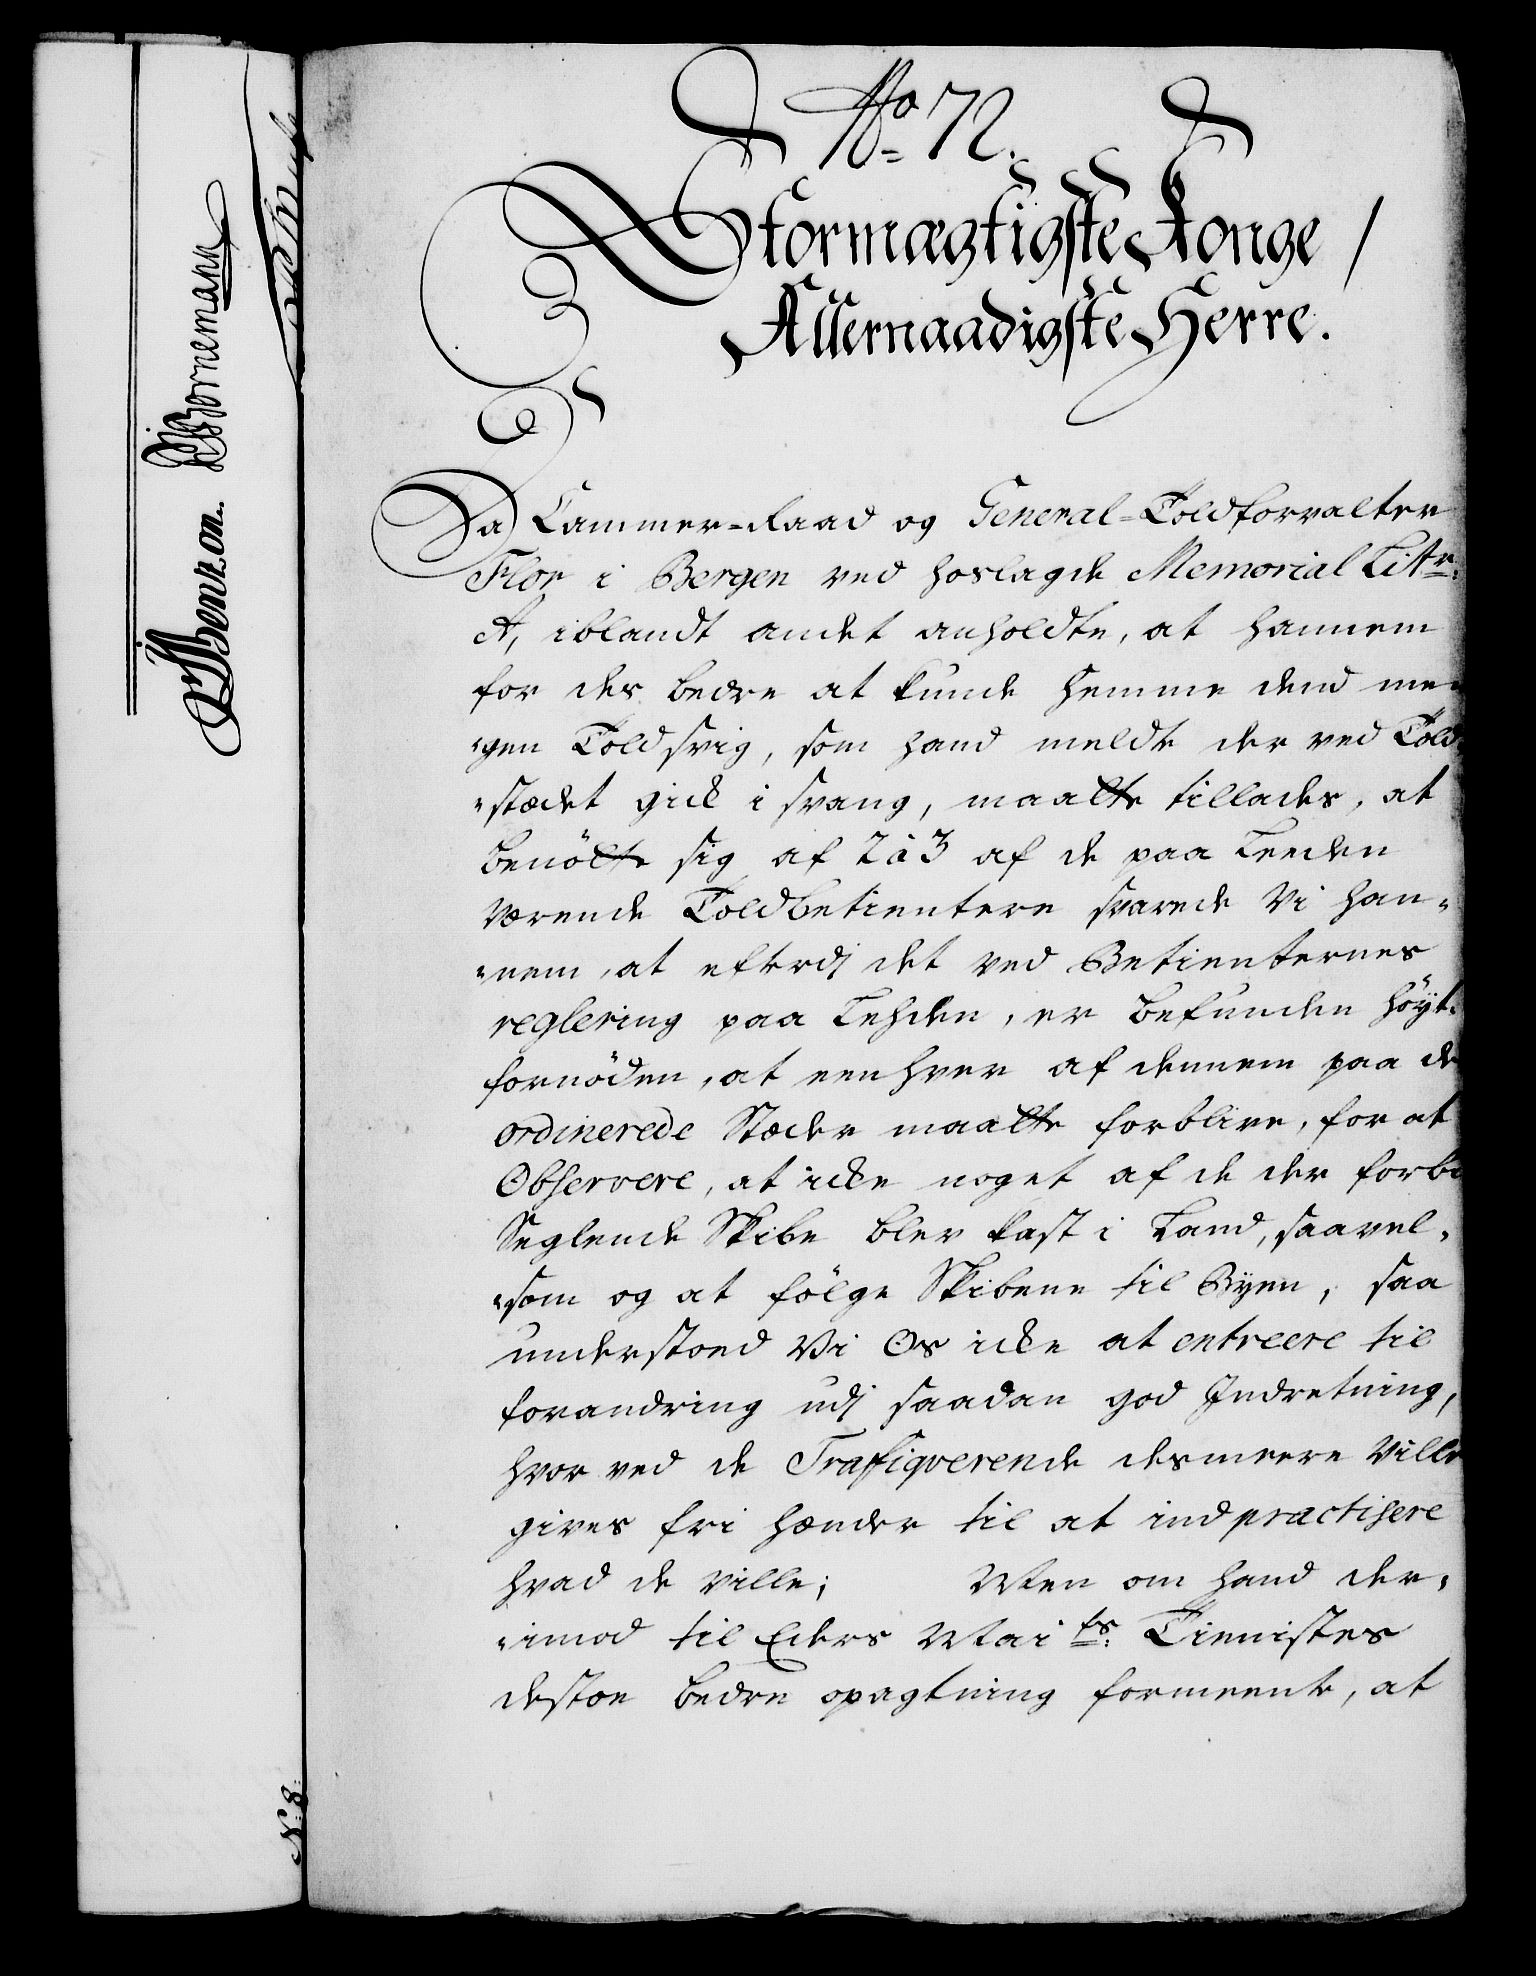 No 72.
Stormægtigste Konge /
Allernaadigste Herre.
Da Cammer-Raad og General-Toldforvalter
Flor i Bergen ved hoslagde Memorial Litr:
A, iblandt andet anholdte, at hannem
for des bedre at kunde hemme dend me-
-gen Toldsvig, som hand meldte der ved Told
-stædet gick i svang, maatte tillades, at
benötte sig af 2 à 3 af de paa Leeden
værende Toldbetientere svarede Vi han-
-nem, at efterdj det ved Betienternes
reglering paa Lehden, er befunden höyt-
fornöden, at een hver af dennem paa de
ordinerede Stæder maatte forblive, for at
Observere, at icke noget af de der forbi
Seglende Skibe blev kast i Land, saavel-
-som og at fölge Skibene til Byen, saa
understoed Vi Os icke at entreere til
forandring udj saadan god Indretning,
hvor ved de Trafiqverende desmeere ville
gives fri hænder til at indpractisere
hvad de ville; Men om hand der-
-imod til Eders Maits: Tienistes
destoe bedre opagtning formeente, at
Benzon. Bornemann
N: 8: